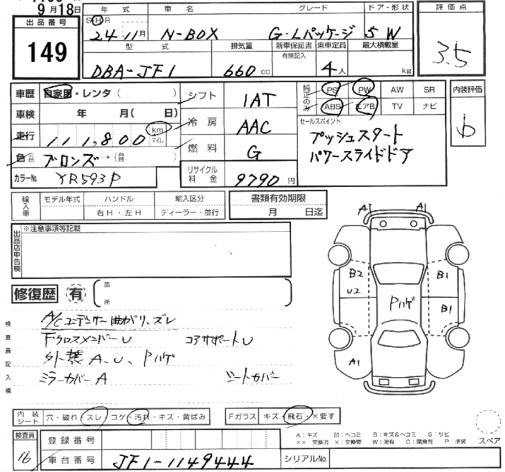 9月18日
出品番号
149
年式 車名 グレード ドア・形状
24年11月 N-BOX G・Lパッケージ 5W
型式 排気量 新車保証書 有無記入 乗車定員 最大積載量
DBA-JF1 660cc 4人 kg
評価点
3.5
車歴 自家用・レンタ( )
車検 年 月( 日)
走行 111,800 km マイル
色 ブロンズ
カラーNo. YR593P
シフト 1AT
冷房 AAC
燃料 G
リサイクル料金 9790円
純正のみ
PS PW AW SR
ABS エアB TV ナビ
セールスポイント
プッシュスタート
パワースライドドア
内装評価
b
輸入車 モデル年式 ハンドル 輸入区分
右H・左H ディーラー・並行
書類有効期限
月 日迄
出品店申告欄
※注意事項等記載
修復歴 有 箇所
検査員記入欄
A/Cコンデンサー曲がり、ズレ
FクロスメンバーU コアサポートU
外装A.U、Pハゲ
ミラーカバーA シートカバー
A1 A1
B2
U2
B1
B1
Pハゲ
A1
内装シート 穴・破れ・スレ・コゲ・汚れ・キズ・黄ばみ
Fガラス キズ・飛石・×要す
A：キズ U：ヘコミ B：キズ&ヘコミ S：サビ
××：交換済 X：交換要 W：波有 C：腐食有 P：塗装
スペア
検査員
16
登録番号
車台番号 JF1-1149444
シリアルNo.